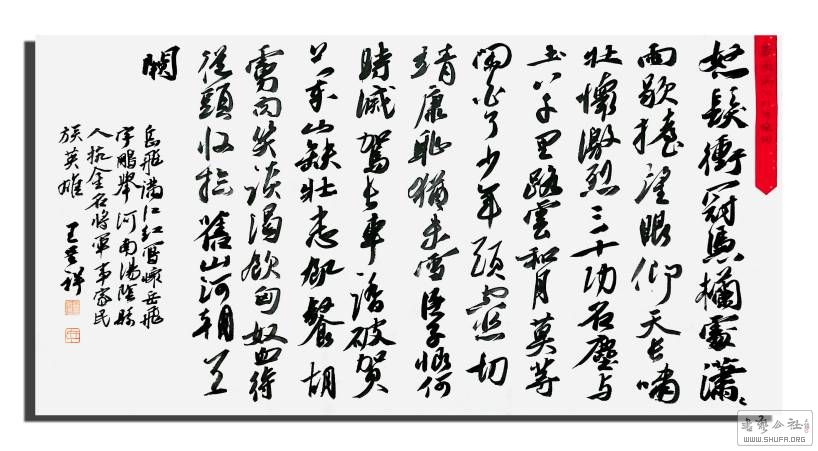 怒髮衝冠憑欄處瀟ミ
雨歇擡望眼仰天長嘯
壯懷激烈三十功名塵與
土八千里路雲和月莫等
閒白了少年頭空悲切
靖康耻猶未雪臣子恨何
時滅駕長車踏破賀
蘭山缺壯志飢餐胡
虜肉笑談渴飲匈奴血待
從頭收拾舊山河朝天
闕
岳飛滿江紅寫懷岳飛
字鵬舉河南湯陰縣
人抗金名將軍事家民
族英雄
書藝公社
WWW.SHUFA.ORG